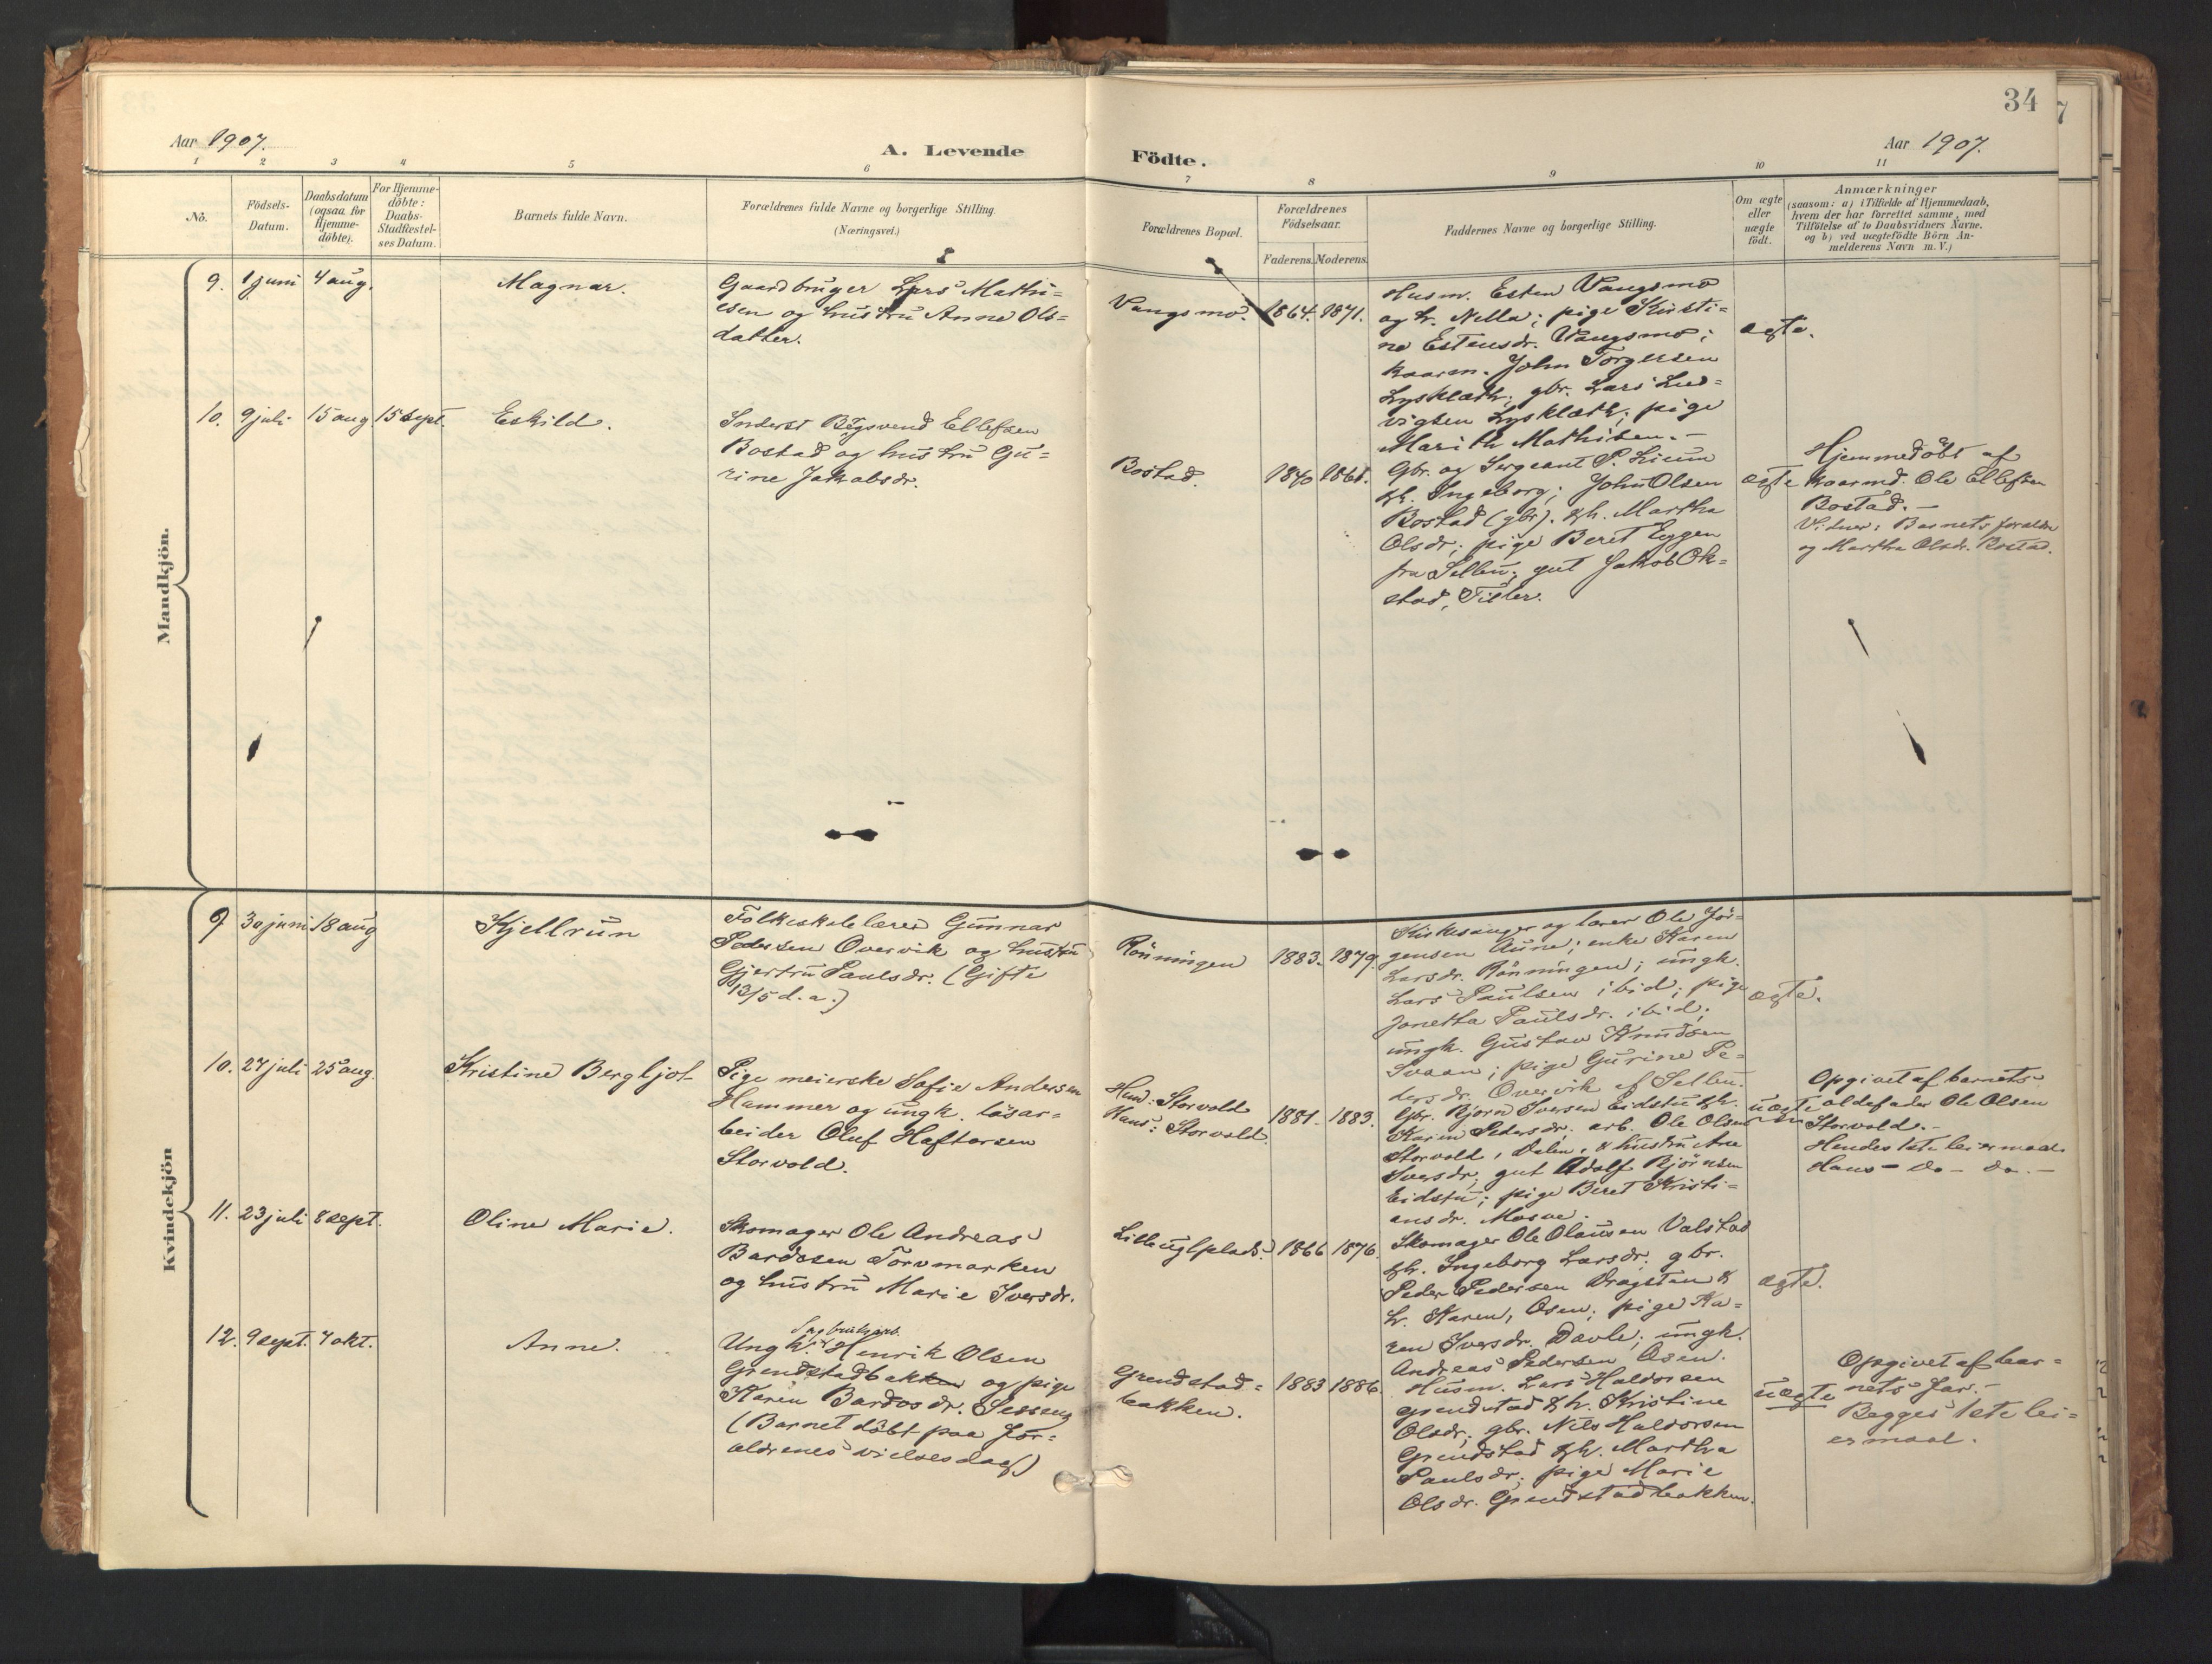 34
Aar 1907.
A. Levende
Födte.
Aar 1907.
1 2 3 4 5 6 7 8 9 10 11
Nö.
Födsels-
Datum.
Daabsdatum
(ogsaa for
Hjemme-
döbte).
For Hjemme-
döbte:
Daabs-
Stadfæstel-
ses Datum.
Barnets fulde Navn.
Forældrenes fulde Navne og borgerlige Stilling.
(Næringsvei.)
Forældrenes Bopæl.
Forældrenes
Födselsaar.
Faderens. Moderens.
Faddernes Navne og borgerlige Stilling.
Om ægte
eller
uægte
født.
Anmærkninger
(saasom: a) i Tilfælde af Hjemmedaab,
hvem der har forrettet samme, med
Tilföielse af to Daabsvidners Navne.
og b) ved uægtefödte Börn An-
melderens Navn m. V.)
Mandkjön.
9. 1 juni 4 aug. Magnar.
Gaardbruger Lars Mathi-
esen og hustru Anne Ols-
datter.
Vangsmo. 1864. 1871.
Husm. Esten Vangsmo
og h. Nella; pige Kristi-
ne Estensdr. Vangsmo;
kaarm. John Torgersen
Lysklæth; gbr. Lars Lud-
vigsen Lysklæth; pige
Marith Mathisen.-
ægte.
10. 9 juli 15 aug 15 sept. Eskild.
Inderst Bøgsvend Ellefsen
Bostad og hustru Gu-
rine Jakobsdr.
Bostad. 1840 1868.
Gbr. og Sergeant P. Lium
&h. Ingeborg; John Olsen
Bostad (gbr). &h. Martha
Olsdr; pige Beret Eggen
fra Selbu; gut Jakob Ok-
stad, Tiller.
ægte
Hjemmedöbt af
kaarmd. Ole Ellefsen
Bostad.-
Vidner: Barnets forældre
og Martha Olsdr. Bostad.
Kvindekjön
9 30 juni 18 aug Kjellrun
Folkeskolelærer Gunnar
Pedersen Overvik og hustru
Gjertru Paulsdr. (Gifte
13/5 d.a.)
Rönningen 1883. 1879.
Kirkesanger og lærer Ole Jör-
gensen Aune; enke Karen
Larsdr. Rönningen; ungk.
Lars Paulsen ibid; pige
Jonetta Paulsdr. ibid;
ungk. Gustav Knudsen
Svaan; pige Gurine Pe-
dersdr. Overvik af Selbu.
ægte.
10. 27 juli 25 aug. Kristine Bergljot
Pige meierske Sofie Andersen
Hammer og ungk. lösar-
beider Oluf Haftorsen
Storvold.
Hend: Storvold
Hans: Storvold.
1881. 1883.
Gbr. Bjorn Iversen Eidstu &h.
Karen Pedersdr. arb. Ole Olsen
Storvold, Dalen, & hustru Ane
Iversdr; gut Adolf Bjørnsen
Eidstu; pige Beret Kristi-
ansdr. Mosve.
uægte
Opgivet af barnets
oldefader Ole Olsen
Storvold.-
Hendes 1ste leiermaal.
Hans - Do - Do.-
11. 23 juli 8 sept. Oline Marie.
Skomager Ole Andreas
Bardosen Torvmarken
og hustru Marie Iversdr.
Lilleuglplads. 1866 1876.
Skomager Ole Olausen Valstad
&h. Ingeborg Larsdr; gbr.
Peder Pedersen Dragsten &
h. Karen, Osen; pige Ka-
ren Iversdr. Davle; ungk.
Andreas Pedersen Osen.
ægte.
12. 9 sept. 7 okt. Anne.
Sagbruksarb.
Ungk. Henrik Olsen
Grendstadbakken og pige
Karen Bardosdr. Sesseng
(Barnet döbt paa For-
ældrenes vielsesdag.)
Grendstad-
bakken.
1883 1886.
Husm. Lars Haldorsen
Grendstad &h. Kristine
Olsdr; gbr. Nils Haldorsen
Grendstad &h. Martha
Paulsdr; pige Marie
Olsdr. Grendstadbakken.
uægte
Opgivet af bar-
nets Far.-
Begges 1ste lei-
ermaal.